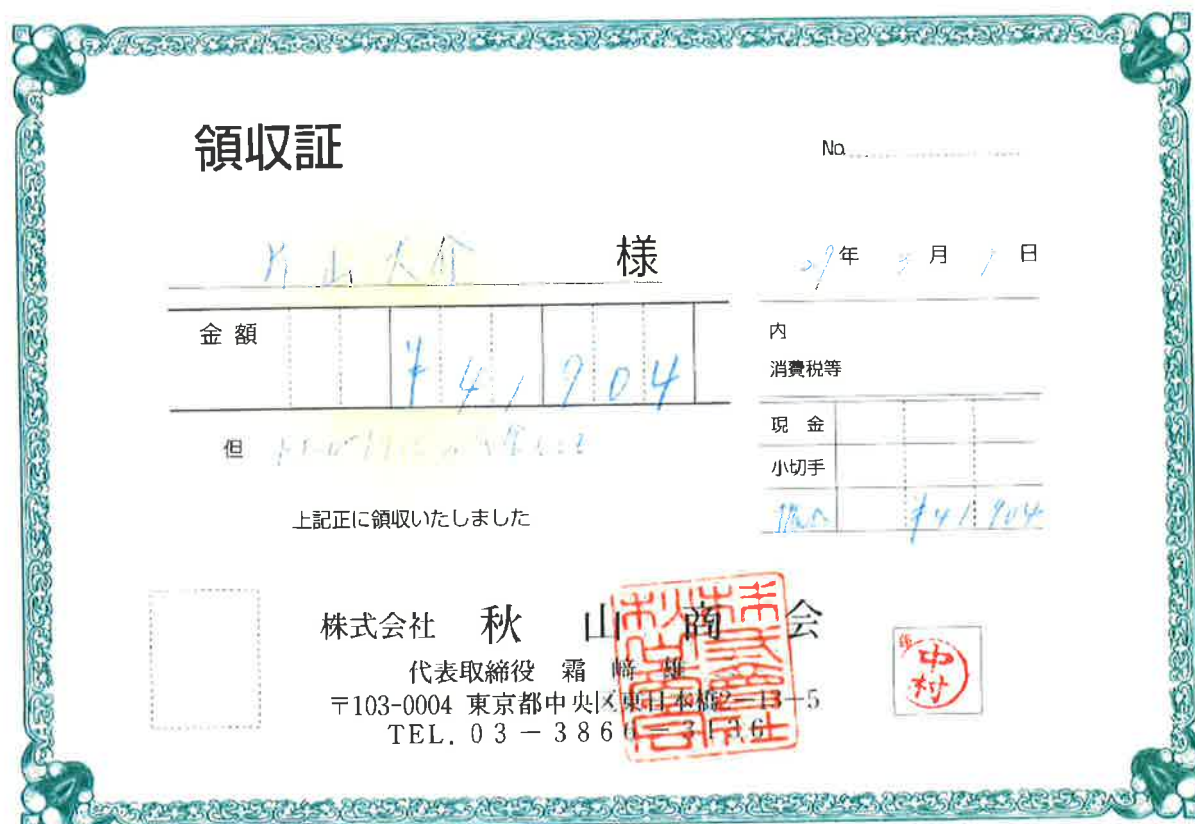 領収証
No.
片山大介 様
29年 5月 1日
金額 ¥41904
内
消費税等
但
現金
小切手
¥41904
上記正に領収いたしました
株式会社 秋山商会
代表取締役 霜﨑
〒103-0004 東京都中央区東日本橋2-13-5
TEL. 03-3866-3136
中村